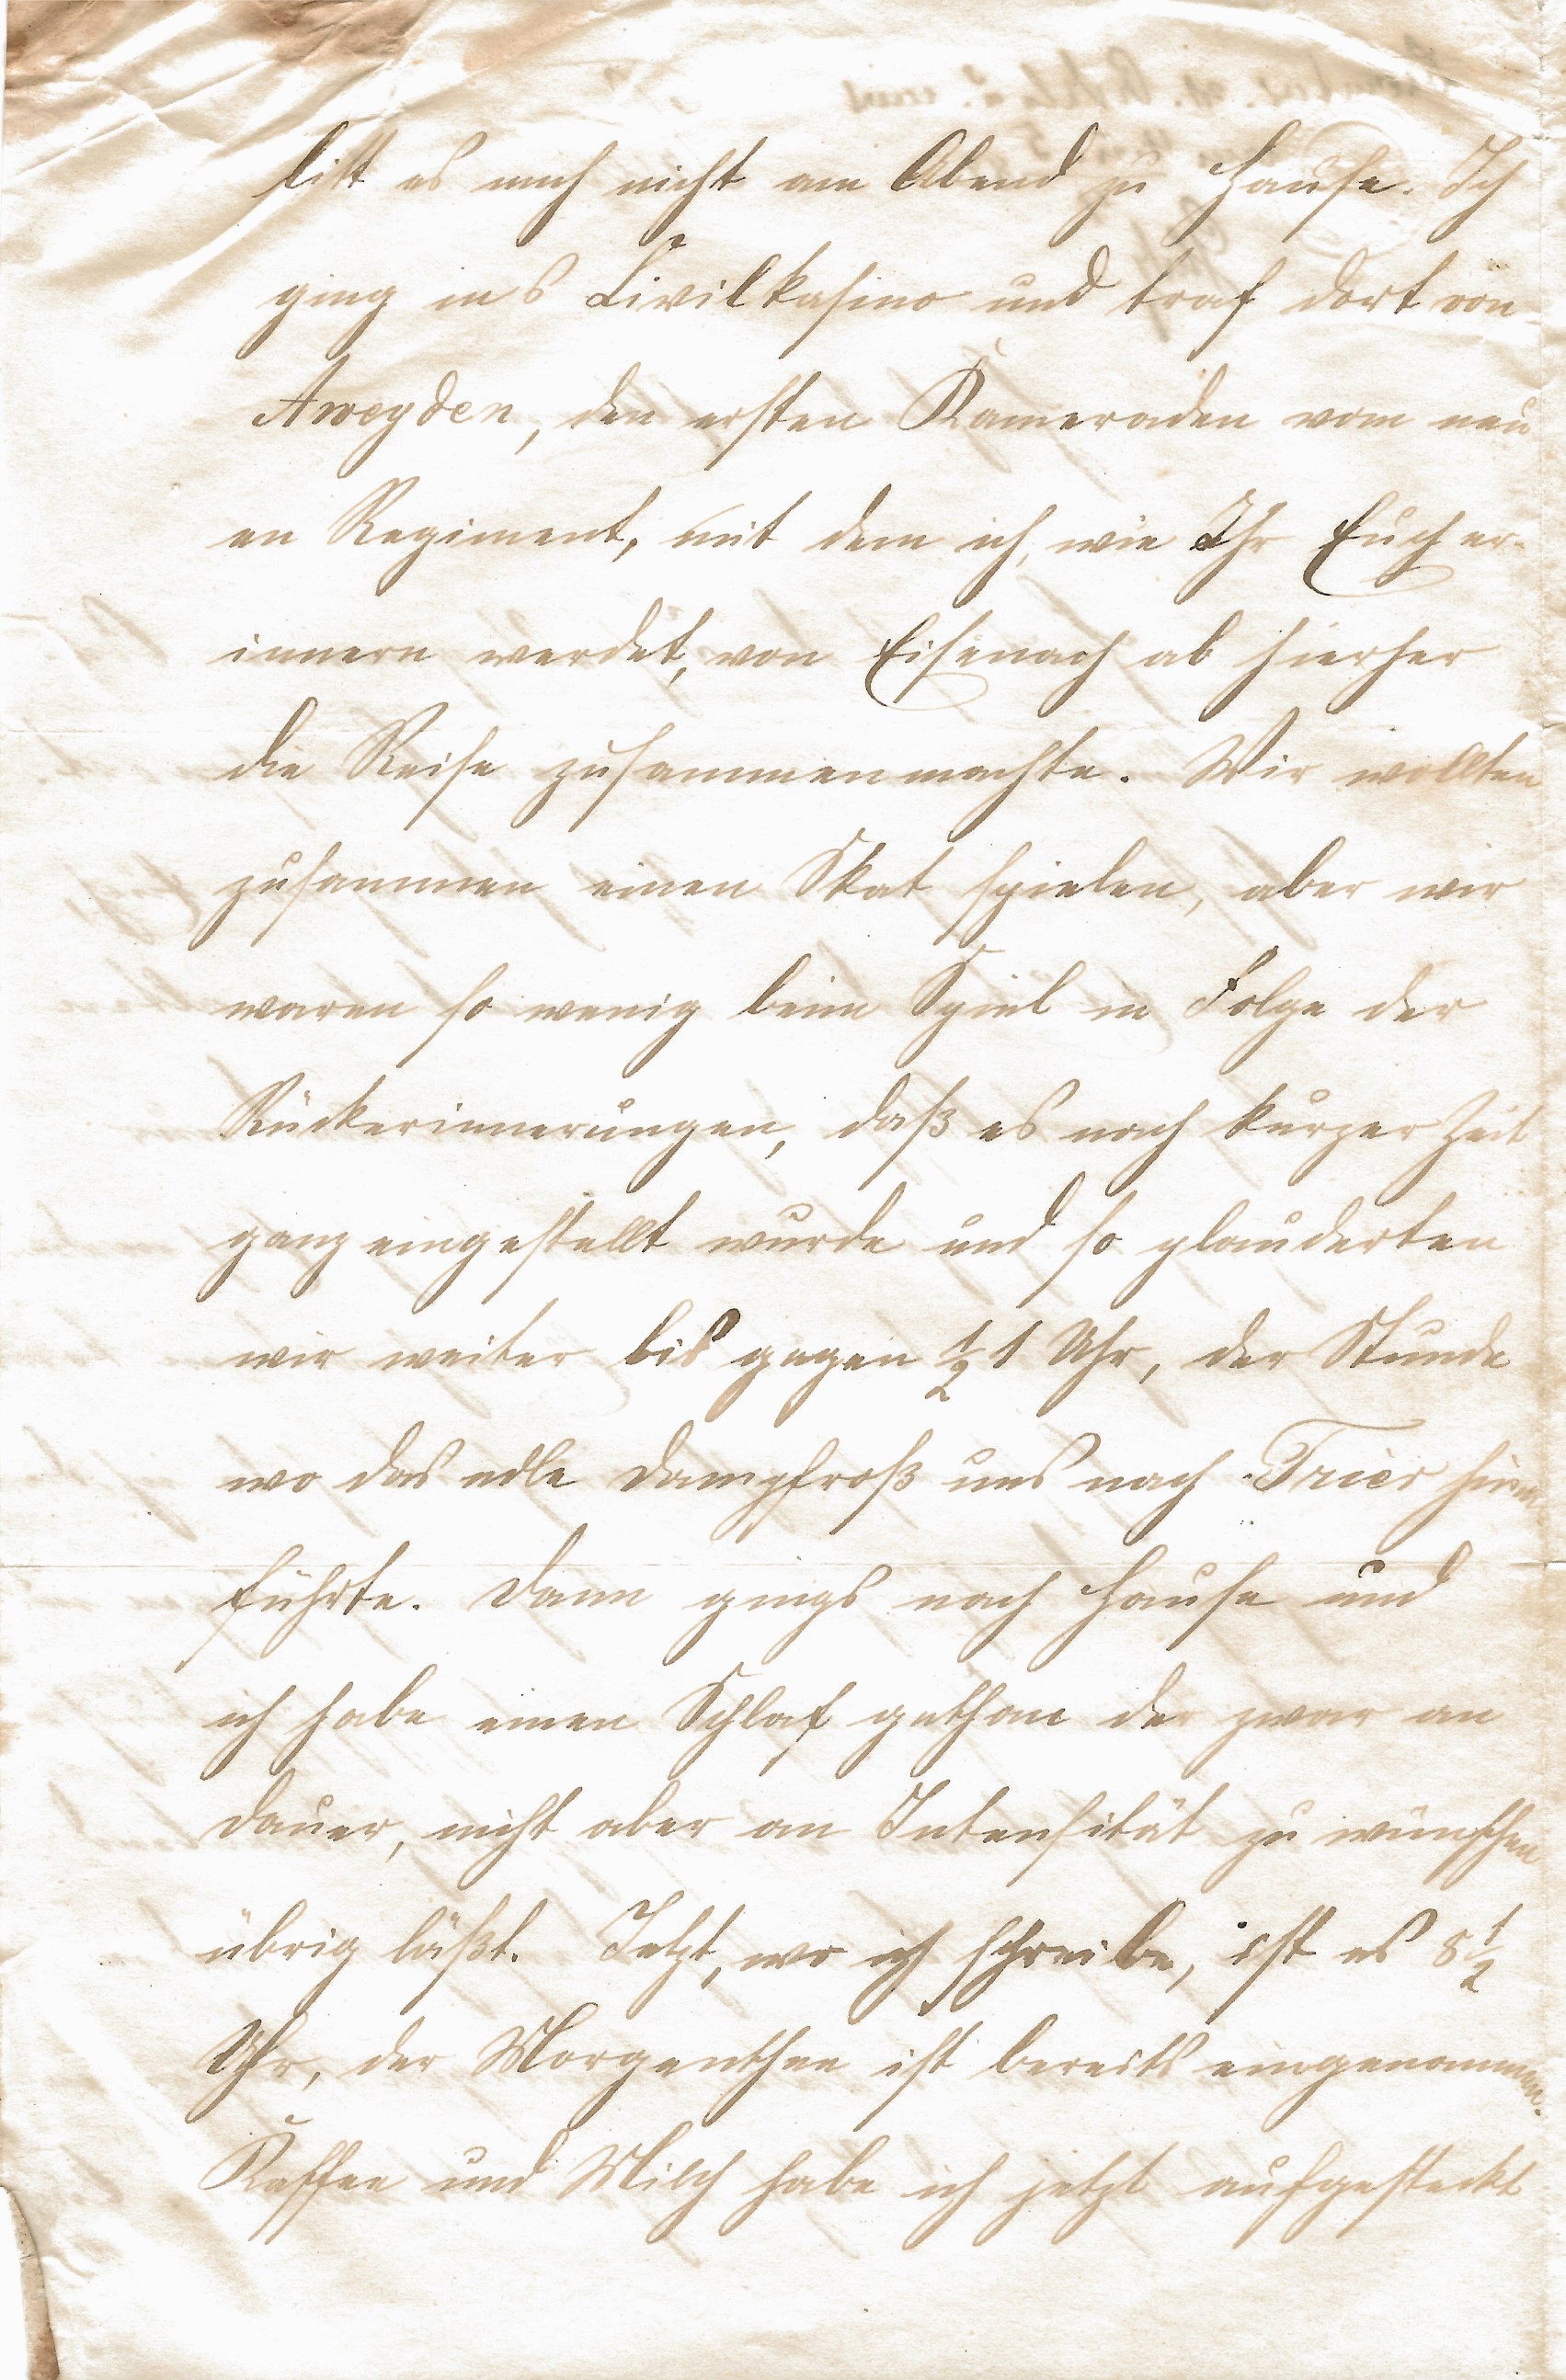 litt es mich nicht am Abend zu Hause. Ich
ging ins Civilkasino und traf dort von
Aweyden, den ersten Kameraden vom neu
en Regiment, mit dem ich, wie Ihr Euch er-
innern werdet, von Eisenach ab hierher
die Reise zusammen machte. Wir wollten
zusammen einen Skat spielen, aber wir
waren so wenig beim Spiel in Folge der
Rückerinnerungen, daß es nach kurzer Zeit
ganz eingestellt wurde und so plauderten
wir weiter bis gegen ½ 1 Uhr, der Stunde
wo das edle Dampfroß uns nach Trier hin
führte. Dann gings nach Hause und
ich habe einen Schlaf gethan der zwar an
Dauer, nicht aber an Intensität zu wünschen
übrig läßt. Jetzt, wo ich schreibe, ist es 8½
Uhr, der Morgenthee ist bereits eingenommen.
Kaffee und Milch habe ich jetzt aufgesteckt